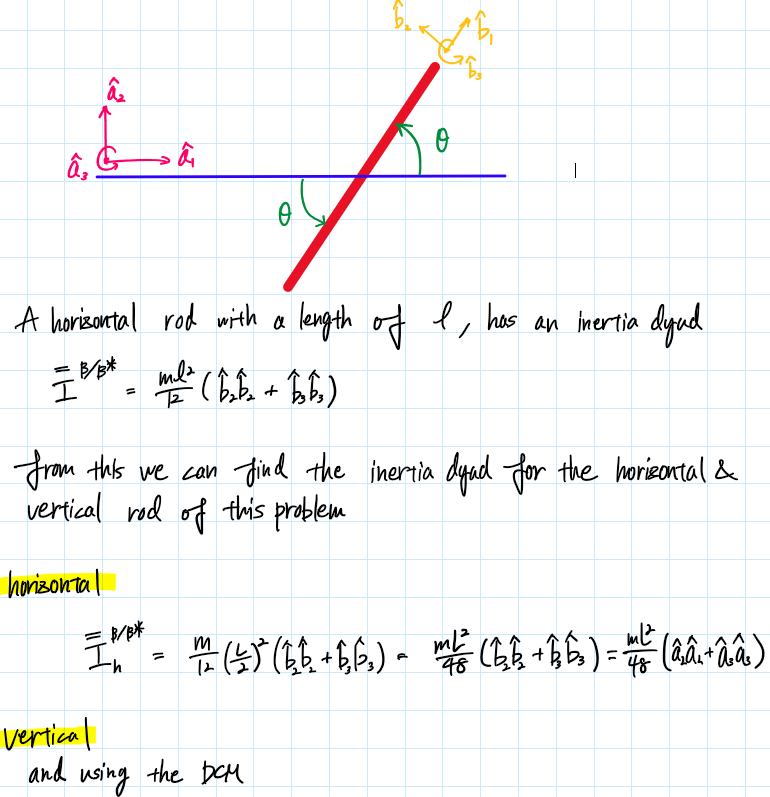 b̂₂ b̂₁
b̂₃
â₂
â₃ â₁
θ
θ
A horizontal rod with a length of l, has an inertia dyad
I^{B/B*} = ml²/12 (b̂₂b̂₂ + b̂₃b̂₃)
from this we can find the inertia dyad for the horizontal &
vertical rod of this problem
horizontal
I_h^{B/B*} = m/12 (L/2)² (b̂₂b̂₂ + b̂₃b̂₃) = mL²/48 (b̂₂b̂₂ + b̂₃b̂₃) = mL²/48 (â₂â₂ + â₃â₃)
vertical
and using the DCM